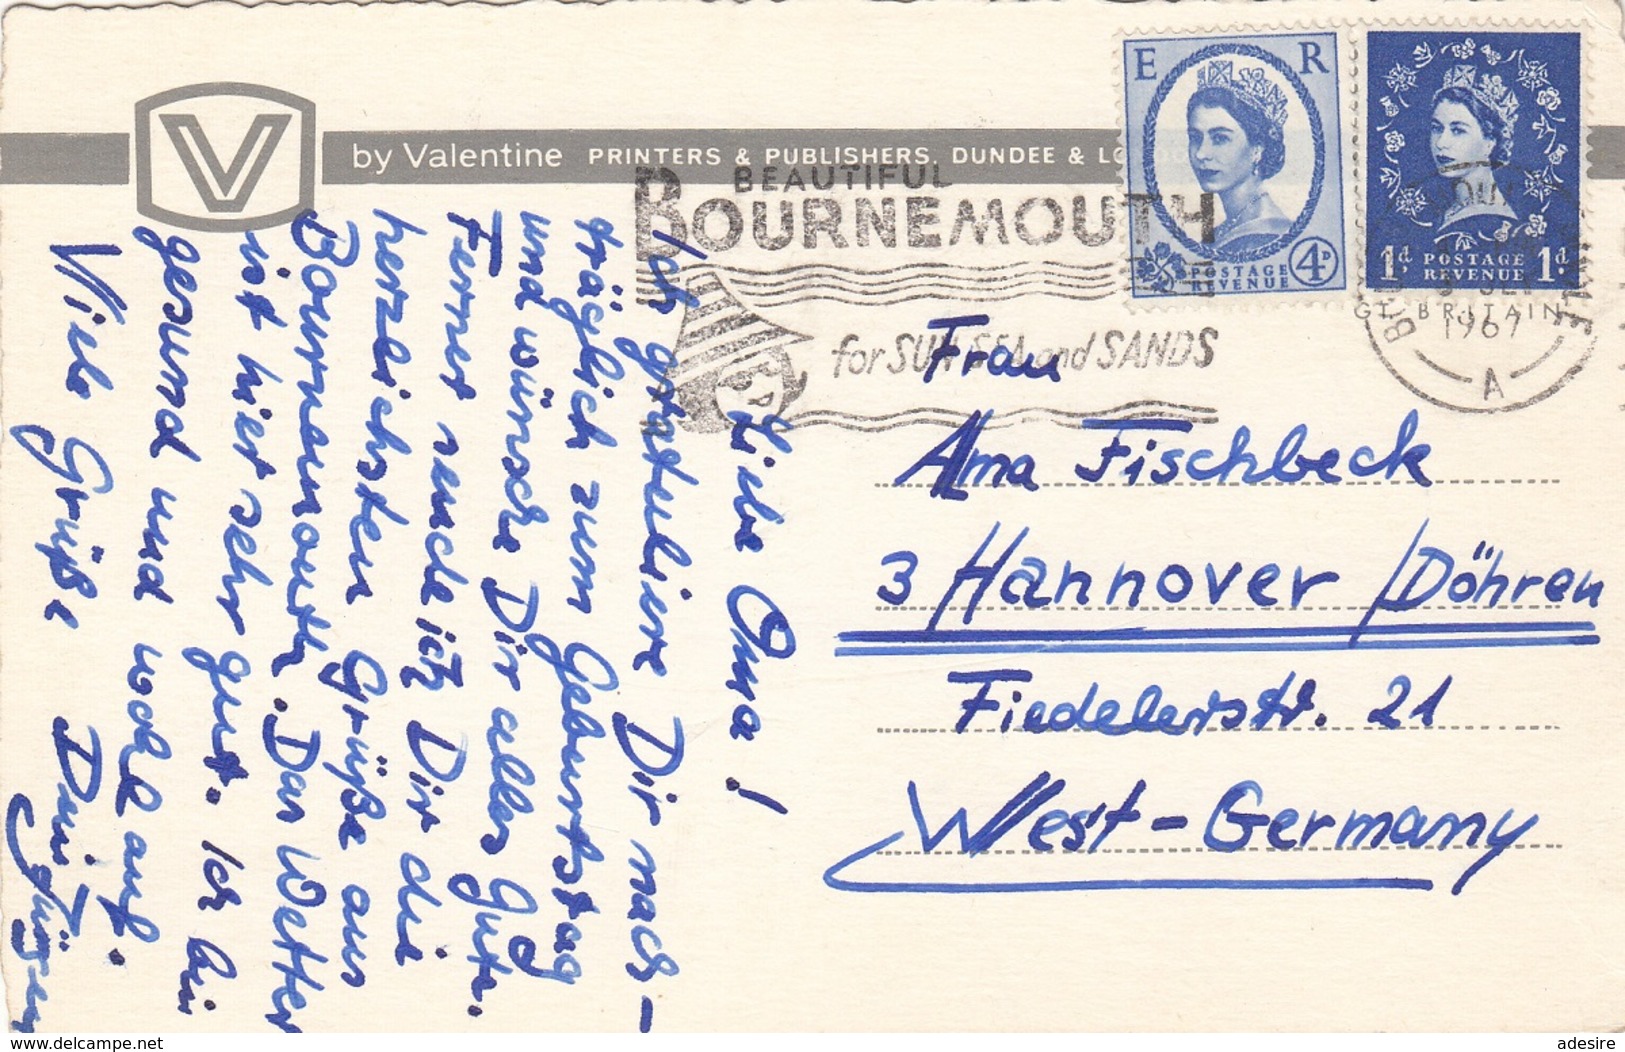 V
by Valentine PRINTERS & PUBLISHERS, DUNDEE &
BEAUTIFUL
BOURNEMOUTH
for SUN SEA and SANDS
E R
POSTAGE
REVENUE
4D
1d POSTAGE
REVENUE 1d
GT. BRITAIN
1967
A
Liebe Oma!
Ich gratuliere Dir nach-
träglich zum Geburtstag
und wünsche Dir alles Gute.
Ferner sende ich Dir die
herzlichsten Grüße aus
Bournemouth. Das Wetter
ist hier sehr gut. Ich bin
gesund und wohl auf.
Viele Grüße Dein Jürgen
Frau
Alma Fischbeck
3 Hannover/Döhren
Fiedelerstr. 21
West-Germany
www.delcampe.net
adesire